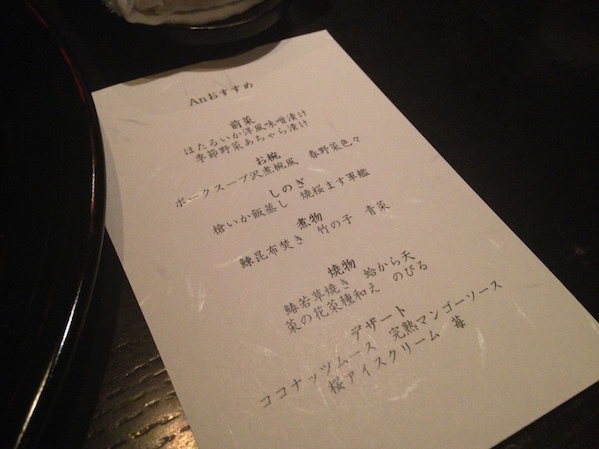 Anおすすめ
前菜
ほたるいか洋風味噌漬け
季節野菜あちゃら漬け
お椀
ポークスープ沢煮椀風　春野菜色々
しのぎ
槍いか飯蒸し　焼桜ます軍艦
煮物
鰊昆布焚き　竹の子　青菜
焼物
鰆若草焼き　蛤から天
菜の花菜種和え　のびる
デザート
ココナッツムース　完熟マンゴーソース
桜アイスクリーム　苺